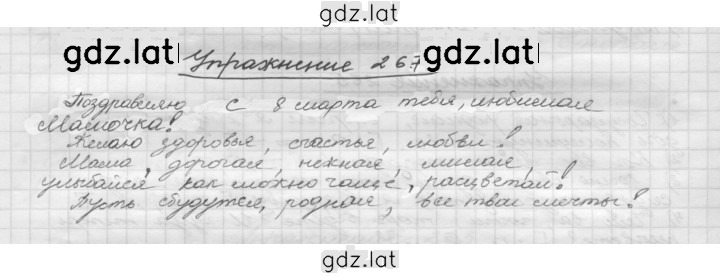 gdz.lat
gdz.lat gdz.lat
Упражнение 267
Поздравляю с 8 марта тебя, любимая
Мамочка!
Желаю здоровья, счастья, любви!
Мама, дорогая, нежная, милая,
улыбайся как можно чаще, расцветай!
Пусть сбудутся, родная, все твои мечты!
gdz.lat